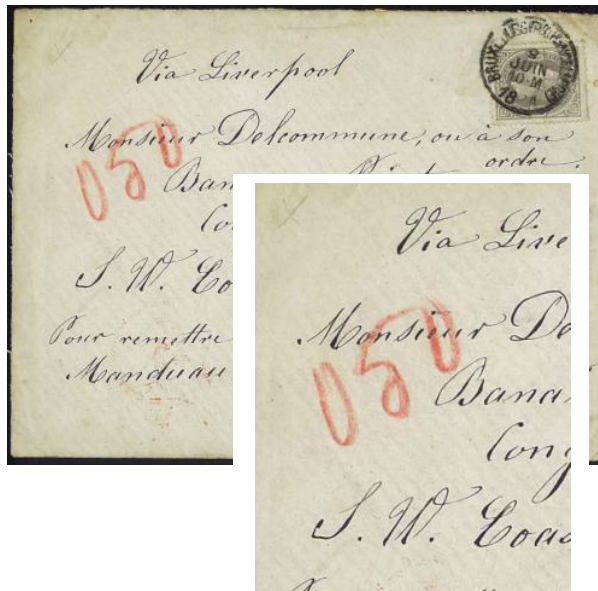 Via Liverpool
BRUXELLES
8
JUIN
10-M
18
Monsieur Delcommune, ou à son
ordre.
050
Ban
Co
S. W. Co
Pour remettre
Manduau
Via Live
Monsieur De
050
Bana
Cong
S. W. Coas